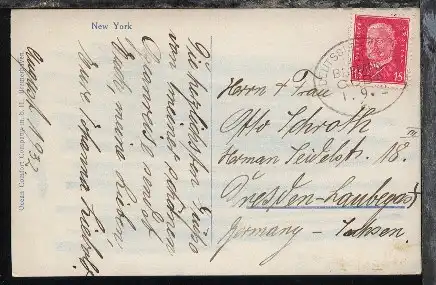 New York
August 1932
Die herzlichsten Grüße
von meiner schönen
Oceanreise sendet
Euch, meine Lieben,
Eure Johanna
Herrn & Frau
Otto Schroth
Herman Seidelstr. 18.
III
Dresden-Laubegast
Germany - Sachsen.
Ocean Comfort Company m. b. H.
15
15